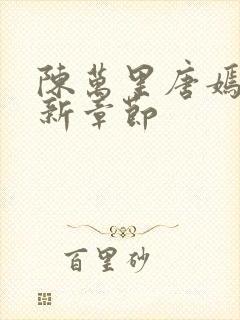 陳萬里唐嫣
新章節
百里砂